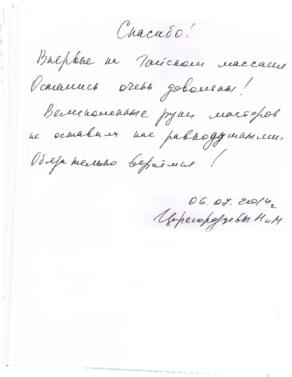 Спасибо!
Впервые на Тайском массаже
Остались очень довольны!
Великолепные руки мастеров
не оставили нас равнодушными.
Обязательно вернёмся!
06.07.2014г